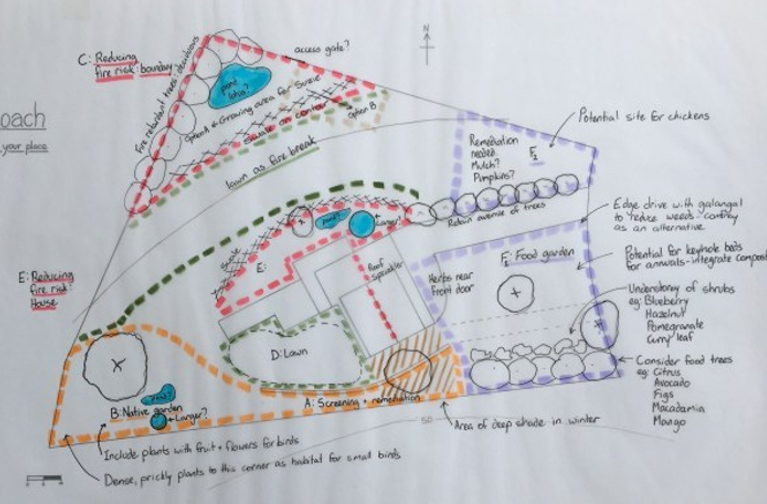 oach
your place
N
C: Reducing
fire risk: boundary
access gate?
fire retardant trees: deciduous
pond
Option A + Growing area for Suzie
swale on contour
option B
lawn as fire break
Potential site for chickens
Remediation
needed.
Mulch?
Pumpkins?
F2
Retain avenue of trees
Edge drive with galangal
to reduce weeds - comfrey
as an alternative
E: Reducing
fire risk:
House
swale
pond?
Larger?
E:
Roof
sprinkler
Herbs near
front door
F: Food garden
Potential for keyhole beds
for annuals - integrate compost
Understorey of shrubs
eg: Blueberry
Hazelnut
Pomegranate
Curry leaf
D: Lawn
Consider food trees
eg: Citrus
Avocado
Figs
Macadamia
Mango
pond?
B: Native garden
Larger?
A: Screening + remediation
50
Area of deep shade in winter
Include plants with fruit + flowers for birds
Dense, prickly plants to this corner as habitat for small birds